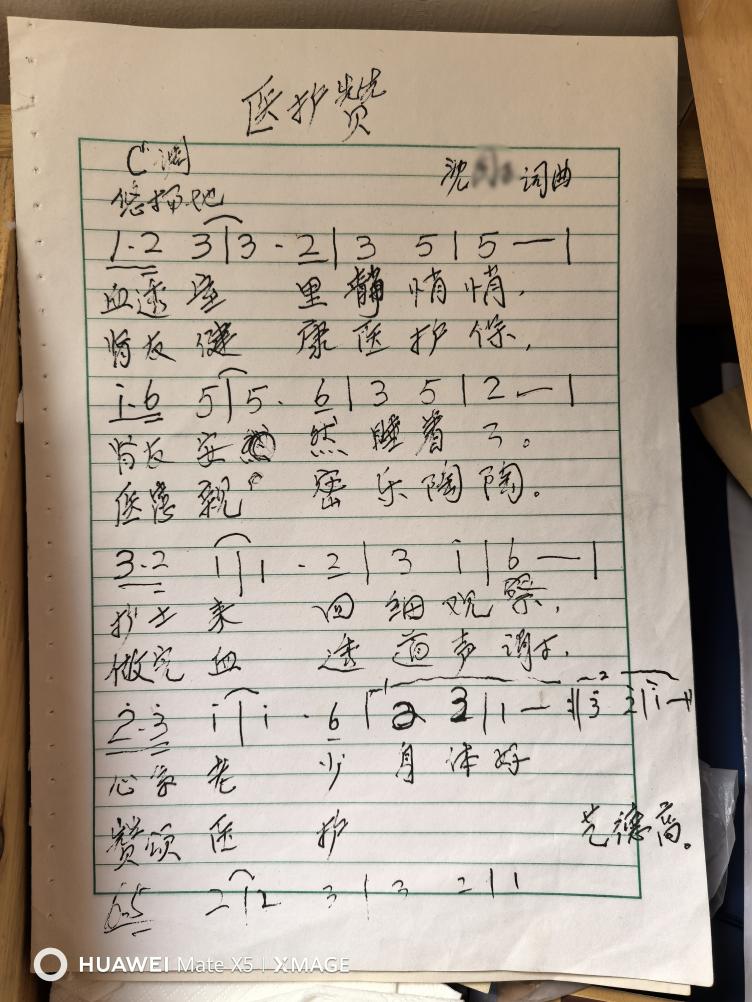 医护赞
C调
沈 词曲
悠扬地
1·2 3|3·2|3 5|5—|
血透室 里静悄悄,
肾友健 康医护保,
i·6 5|5·6|3 5|2—|
肾友安 然睡着了。
医患亲 密乐陶陶。
3·2 i|1·2|3 i|6—|
护士来 回细观察,
做完血 透道声谢,
2·3 i|i·6 2 3|1—:‖3 2|i—|
心念老 少身体好
赞颂医 护 艺德高。
6·5 2|2 3|3 2|1
HUAWEI Mate X5 | XMAGE